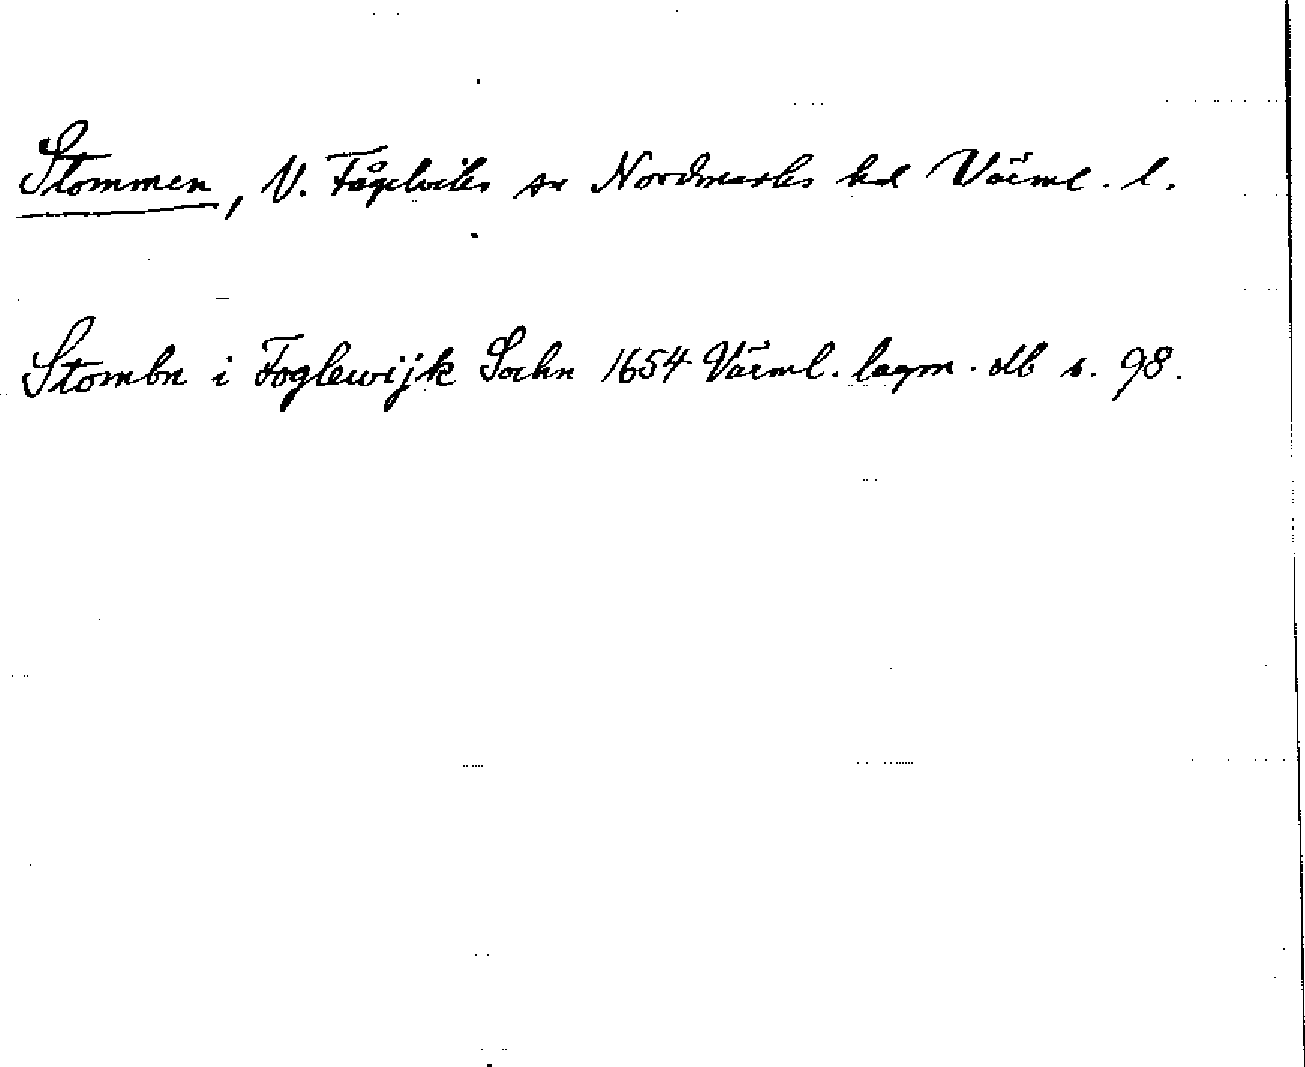 Stommen, V. Fågelviks sn Nordmarks hd Värml. l.
Stombn i Foglewijk Sochn 1654 Värml. lagm. db s. 98.